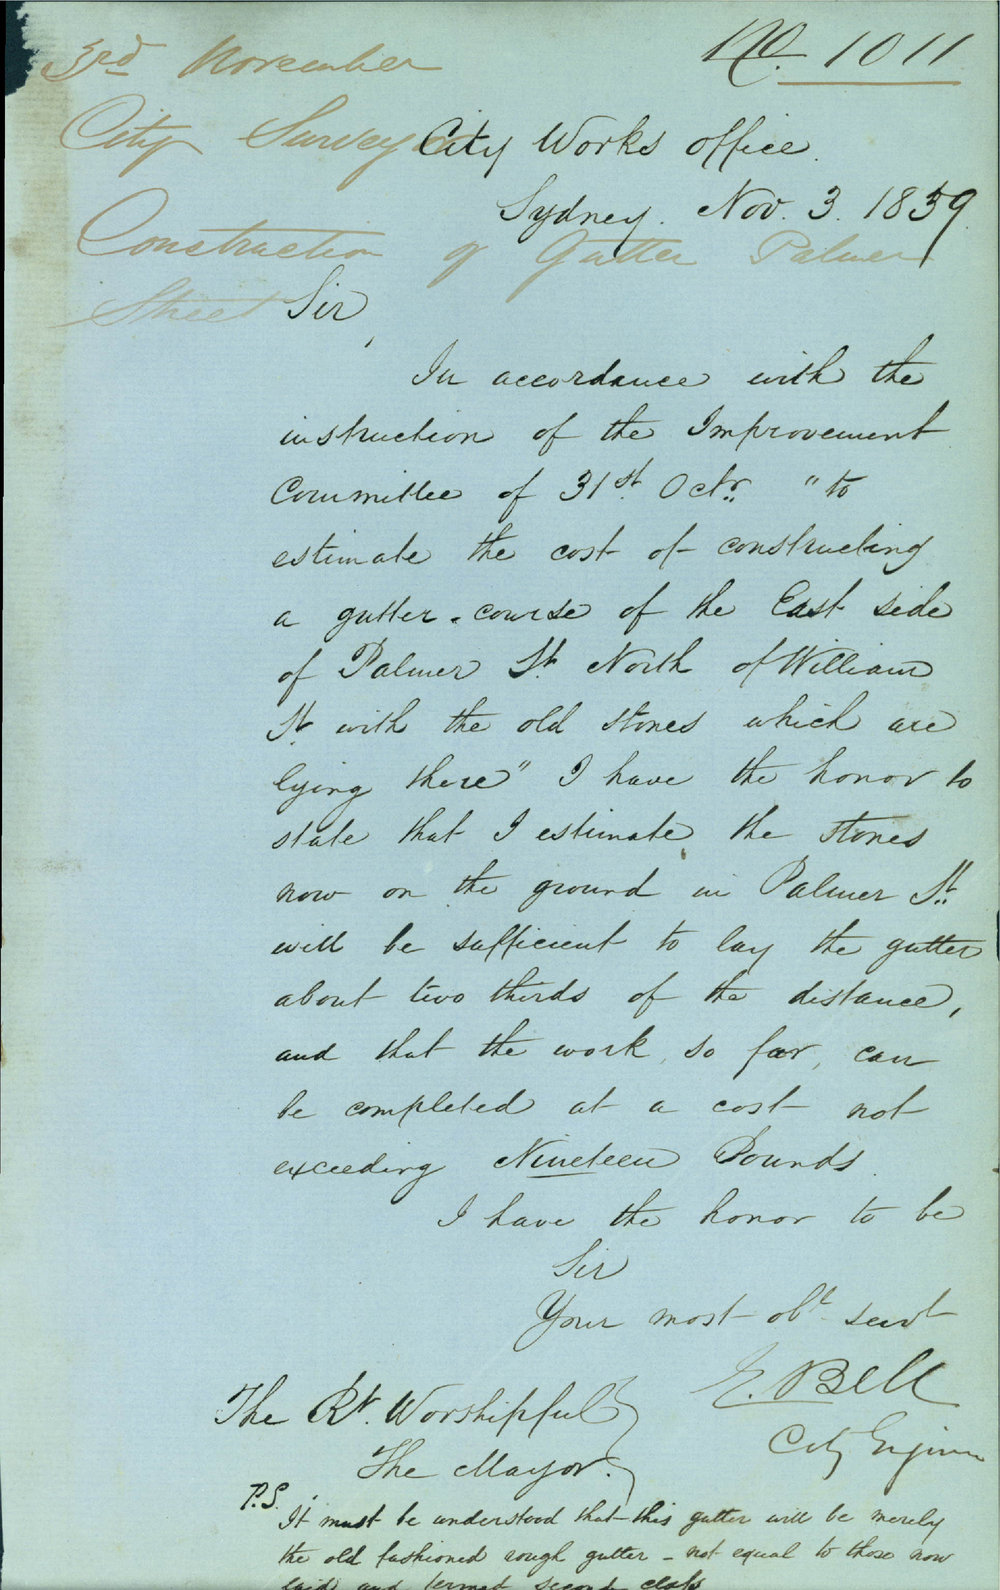 3rd November
No. 1011
City Surveyor
City Works Office.
Sydney. Nov. 3. 1859.
Construction of Gutter Palmer
Street
Sir,
In accordance with the
instruction of the Improvement
Committee of 31st. Octr. "to
estimate the cost of constructing
a gutter-course of the East side
of Palmer St. North of William
St. with the old stones which are
lying there" I have the honor to
state that I estimate the stones
now on the ground in Palmer St.
will be sufficient to lay the gutter
about two thirds of the distance,
and that the work, so far, can
be completed at a cost not
exceeding Nineteen Pounds.
I have the honor to be
Sir
Your most obt. servt
E. Bell
City Engineer
The Rt. Worshipful
The Mayor.
P.S. It must be understood that this gutter will be merely
the old fashioned rough gutter - not equal to those now
laid and termed second class